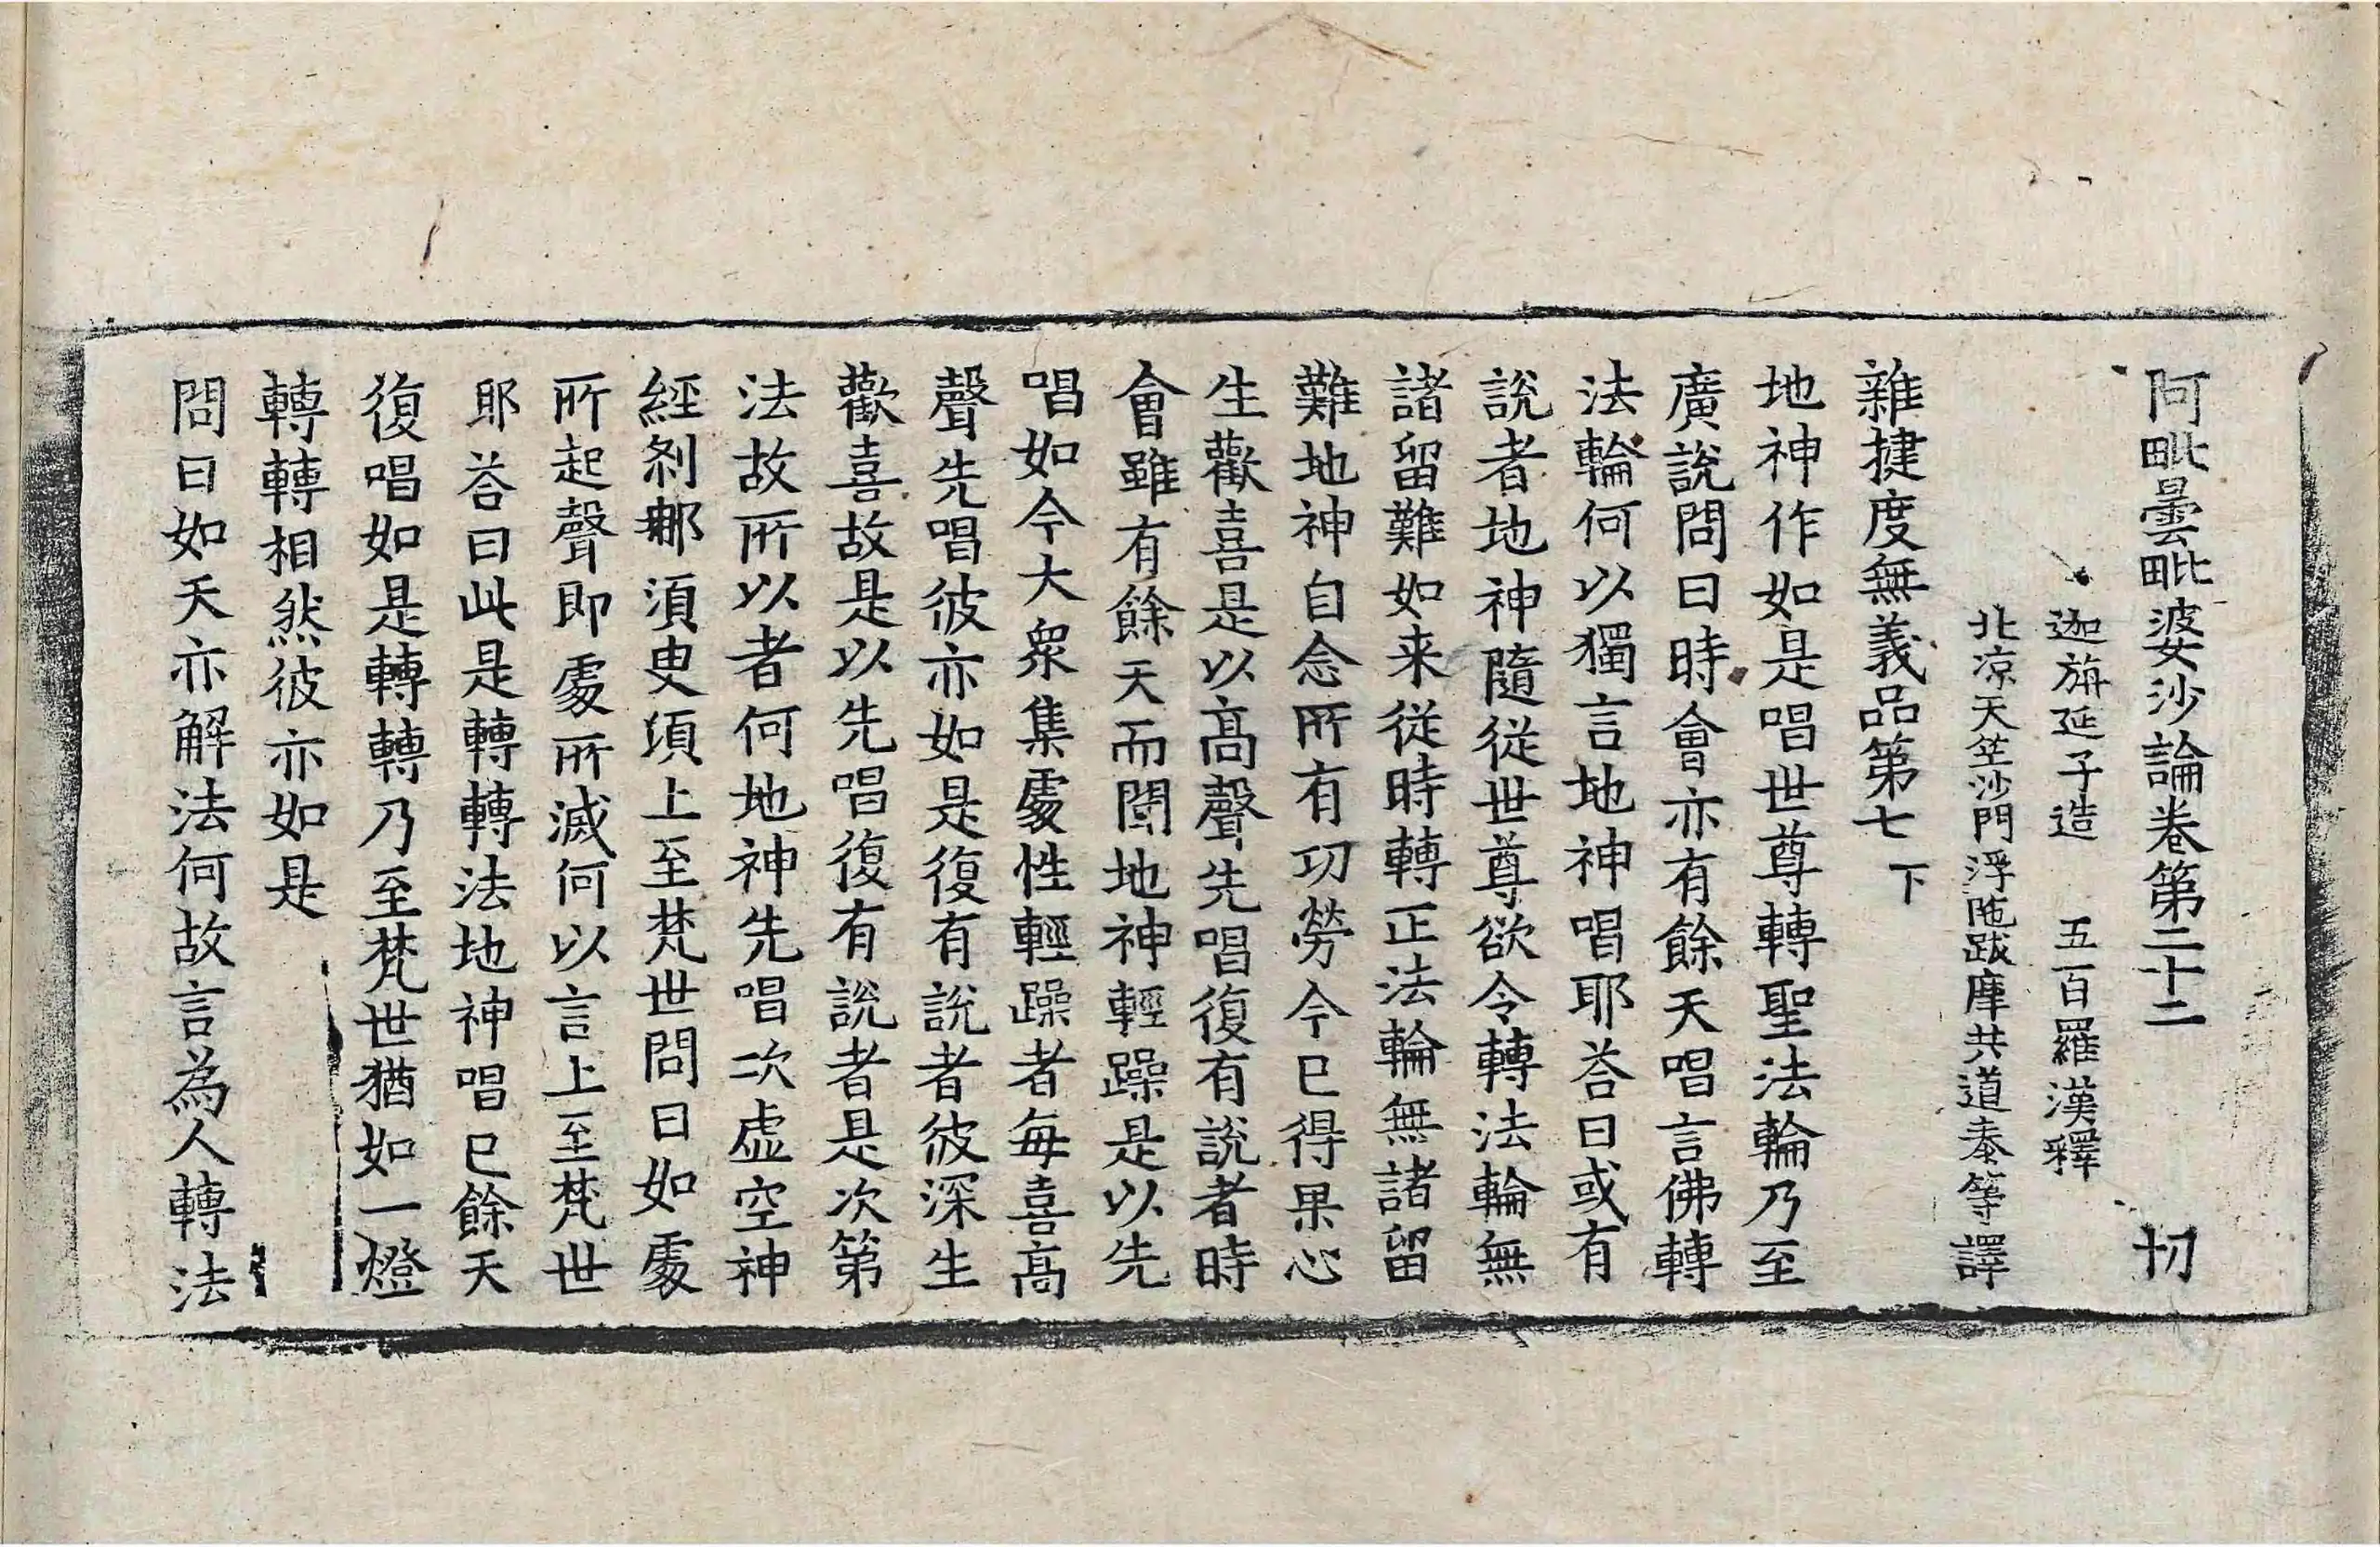 阿毗曇毗婆沙論卷第二十二 切
迦旃延子造 五百羅漢釋
北涼天竺沙門浮陁跋摩共道泰等譯
雜揵度無義品第七 下
地神作如是唱世尊轉聖法輪乃至
廣說問曰時會亦有餘天唱言佛轉
法輪何以獨言地神唱耶荅曰或有
說者地神隨從世尊欲令轉法輪無
諸留難如来從時轉正法輪無諸留
難地神自念所有功勞今已得果心
生歡喜是以高聲先唱復有說者時
會雖有餘天而聞地神輕躁是以先
唱如今大衆集處性輕躁者每喜高
聲先唱彼亦如是復有說者彼深生
歡喜故是以先唱復有說者是次第
法故所以者何地神先唱次虛空神
經剎那須臾頃上至梵世問曰如處
所起聲即處所滅何以言上至梵世
耶荅曰此是轉轉法地神唱已餘天
復唱如是轉轉乃至梵世猶如一燈
轉轉相然彼亦如是
問曰如天亦解法何故言為人轉法